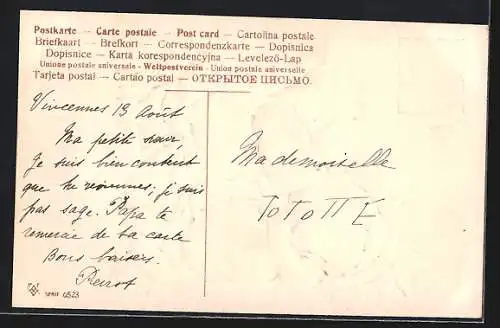 Postkarte — Carte postale — Post card — Cartolina postale
Briefkaart — Brefkort — Correspondenzkarte — Dopisnica
Dopisnice — Karta korespondencyjna — Levelező-Lap
Unione postale universale - Weltpostverein - Union postale universelle
Tarjeta postal — Cartao postal — ОТКРЫТОЕ ПИСЬМО.
Vincennes 13 Août
Ma petite sœur,
Je suis bien content
que tu reviennes; je suis
pas sage. Papa te
remercie de ta carte
Bons baisers.
Pierrot
Mademoiselle
TOTOTTE
SERIE 6523